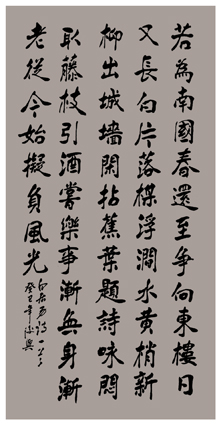 若為南國春還至爭向東樓日
又長白片落楳浮澗水黃梢新
柳出城墻閑拈蕉葉題詩咏悶
取藤枝引酒嘗樂事漸無身漸
老從今始擬負風光
白居易詩一首
癸巳年